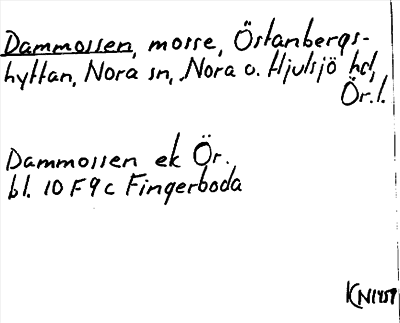 Dammossen, mosse, Östanbergs-
hyttan, Nora sn, Nora o. Hjulsjö hd,
Ör.l.
Dammossen ek Ör.
bl. 10 F 9 c Fingerboda